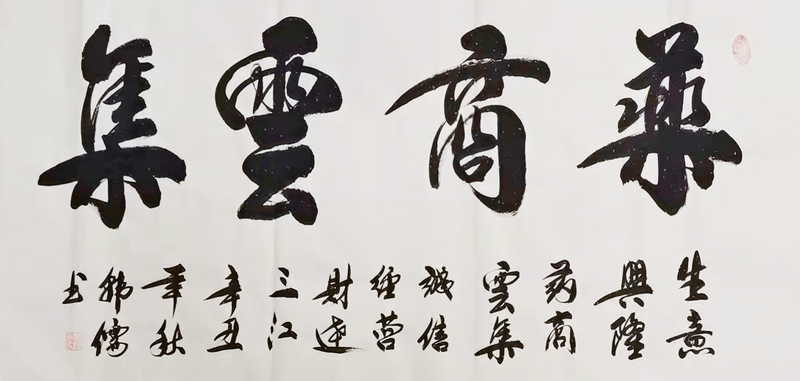 藥商雲集
生意
興隆
药商
雲集
誠信
經營
財達
三江
辛丑
年秋
韩儒
书